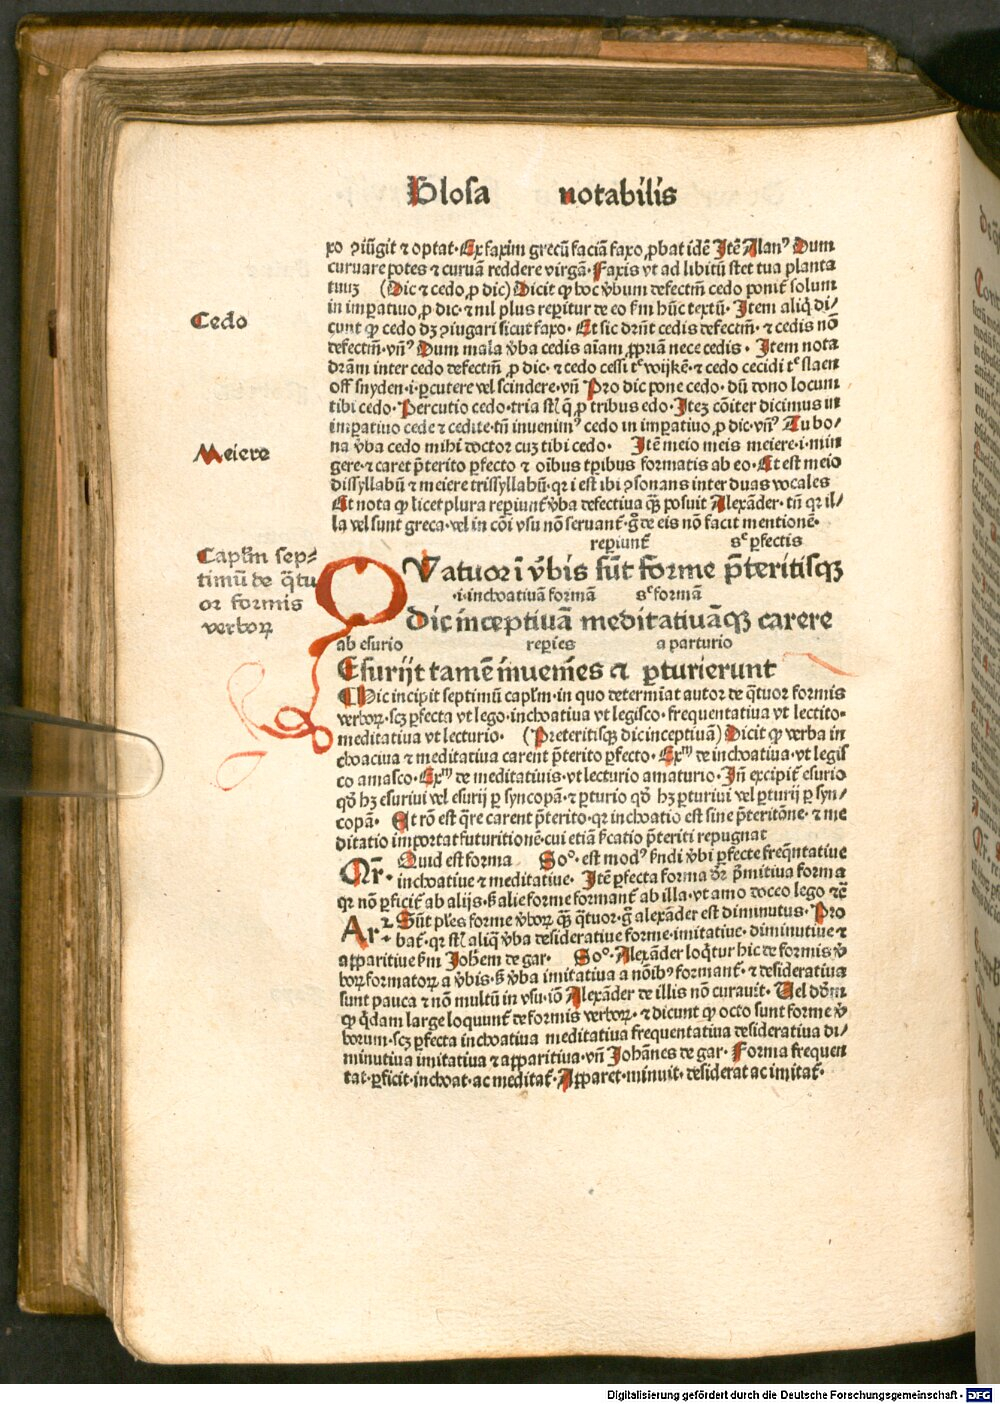 Glosa notabilis
xo ꝯiũgit ⁊ optat· Ex faxim grecũ faciã faxo ꝓbat idẽ Itẽ Alanꝰ Dum
curuare potes ⁊ curuã reddere virgã· Faxis vt ad libitũ stet tua planta
tuuꝫ (Dic ⁊ cedo ꝓ dic) Dicit ꝙ hoc ṽbum defectiuũ cedo ponit̃ solum
in imꝑatiuo ꝓ dic· ⁊ nil plus reꝑitur de eo ẜm hũc textũ· Item aliq̃ di/
Cedo
cunt ꝙ cedo dꝫ ꝯiugari sicut faxo· Et sic dr̃nt cedis defectiũ· ⁊ cedis nõ
defectiũ· vñꝰ Dum mala ṽba cedis aĩam ꝓpriã nece cedis· Item nota
dr̃am inter cedo defectiũ ꝓ dic· ⁊ cedo cessi tᵉ wijkẽ· ⁊ cedo cecidi tᵉ slaen
off snyden·i·ꝑcutere vel scindere· vñ Pro dic pone cedo· dũ dono locum
tibi cedo· Percutio cedo· tria sĩl q̃ ꝓ tribus edo· Iteꝫ cõiter dicimus in
imꝑatiuo cede ⁊ cedite· tñ inuenimꝰ cedo in imꝑatiuo ꝓ dic· vñꝰ Tu bo/
na ṽba cedo mihi doctor cuꝫ tibi cedo· Itẽ meio meis meiere·i·min
Meiere
gere· ⁊ caret p̃terito ꝑfecto ⁊ oĩbus tꝑibus formatis ab eo· Et est meio
dissyllabũ ⁊ meiere trissyllabũ· qꝛ i est ibi ꝯsonans inter duas vocales
Et nota ꝙ licet plura reꝑiunt̃ ṽba defectiua q̃ꝫ posuit Alexãder· tñ qꝛ il/
la vel sunt greca· vel in cõi vsu nõ seruant̃· g̃ de eis nõ facit mentionẽ·
reꝑiunt̃ sᶜ ꝑfectis
Capľm sep⸗
timũ de q̃tu
or formis
verboꝝ
QVatuor i ṽbis sũt forme p̃teritisqꝫ
·i·inchoatiuã formã sᶜ formã
dic inceptiuã meditatiuãqꝫ carere
ab esurio reꝑies a parturio
Esurijt tamẽ inueniẽs ⁊ ꝑturierunt
Hic incipit septimũ capľm· in quo determĩat autor de q̃tuor formis
verboꝝ· scꝫ ꝑfecta vt lego· inchoatiua vt legisco· frequentatiua vt lectito·
meditatiua vt lecturio· (Preteritisqꝫ dic inceptiuã) Dicit ꝙ verba in
choaciua ⁊ meditatiua carent p̃terito ꝑfecto· Exᵐ de inchoatiua· vt legis
co amasco· Exᵐ de meditatiuis· vt lecturio amaturio· Iñ excipit̃ esurio
qd̃ hꝫ esuriui vel esurij ꝑ syncopã· ⁊ ꝑturio qd̃ hꝫ ꝑturiui vel ꝑturij ꝑ syn/
copã· Et rõ est q̃re carent p̃terito· qꝛ inchoatio est sine p̃teritõne· ⁊ me
ditatio importat futuritionẽ· cui etiã ẜcatio p̃teriti repugnat
Qr̃· Quid est forma Soᵒ· est modꝰ ẜndi ṽbi ꝑfecte freq̃ntatiue
inchoatiue ⁊ meditatiue· Itẽ ꝑfecta forma dr̃ p̃mitiua forma
qꝛ nõ ꝑficit̃ ab alijs· ẜ alie forme formant̃ ab illa· vt amo doceo lego ⁊c̃
Arꝛ· Sũt pľes forme ṽboꝝ q̃ꝫ q̃tuor· g̃ alexãder est diminutus· Pro
bat̃· qꝛ sĩt aliq̃ ṽba desideratiue forme· imitatiue· diminutiue ⁊
apparitiue ẜm Ioh̃em de gar· Soᵒ· Alexãder loq̃tur hic de formis ṽ
boꝝ formatoꝝ a ṽbis· ẜ ṽba imitatiua a nõĩbꝰ formant̃· ⁊ desideratiua
sunt pauca ⁊ nõ multũ in vsu· iõ Alexãder de illis nõ curauit· Uel dõm
ꝙ q̃dam large loquunt̃ de formis verboꝝ· ⁊ dicunt ꝙ octo sunt forme ṽ
borum· scꝫ ꝑfecta inchoatiua meditatiua frequentatiua desideratiua di/
minutiua imitatiua ⁊ apparitiua· vñ Iohãnes de gar· Forma frequen
tat· ꝑficit· inchoat· ac meditat̃· Apparet· minuit· desiderat ac imitat̃·
Digitalisierung gefördert durch die Deutsche Forschungsgemeinschaft - DFG